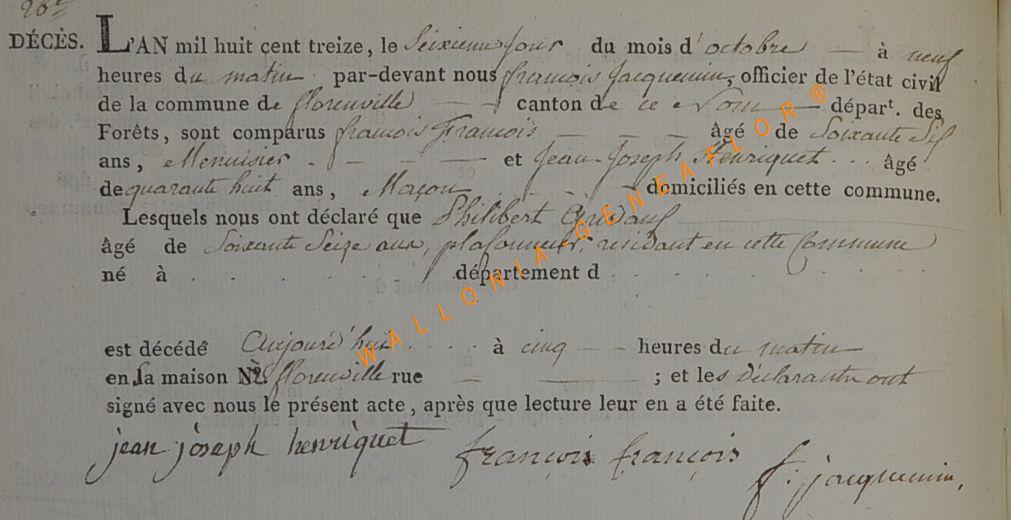 26e
DÉCÈS. L'AN mil huit cent treize, le Seixieme jour du mois d'octobre — à neuf
heures du matin par-devant nous françois Jacquemin, officier de l'état civil
de la commune de florenville — — canton de ce Nom — départ. des
Forêts, sont comparus françois François — — — âgé de Soixante Six
ans, Menuisier - — — — et Jean-Joseph Henriquet . . . âgé
de quarante huit ans, Maçon . . . . domiciliés en cette commune.
Lesquels nous ont déclaré que Philibert
âgé de Soixante Seize ans, plafonneur, residant en cette Commune
né à . . . . . . . département d . . . . . .
est décédé Aujourd'hui . . . . à cinq — — heures du matin
en sa maison No. à florenville rue — —— ; et les déclarants ont
signé avec nous le présent acte, après que lecture leur en a été faite.
jean joseph henriquet françois françois f. jacquemin,
WALLONIA GENEAFLOR®